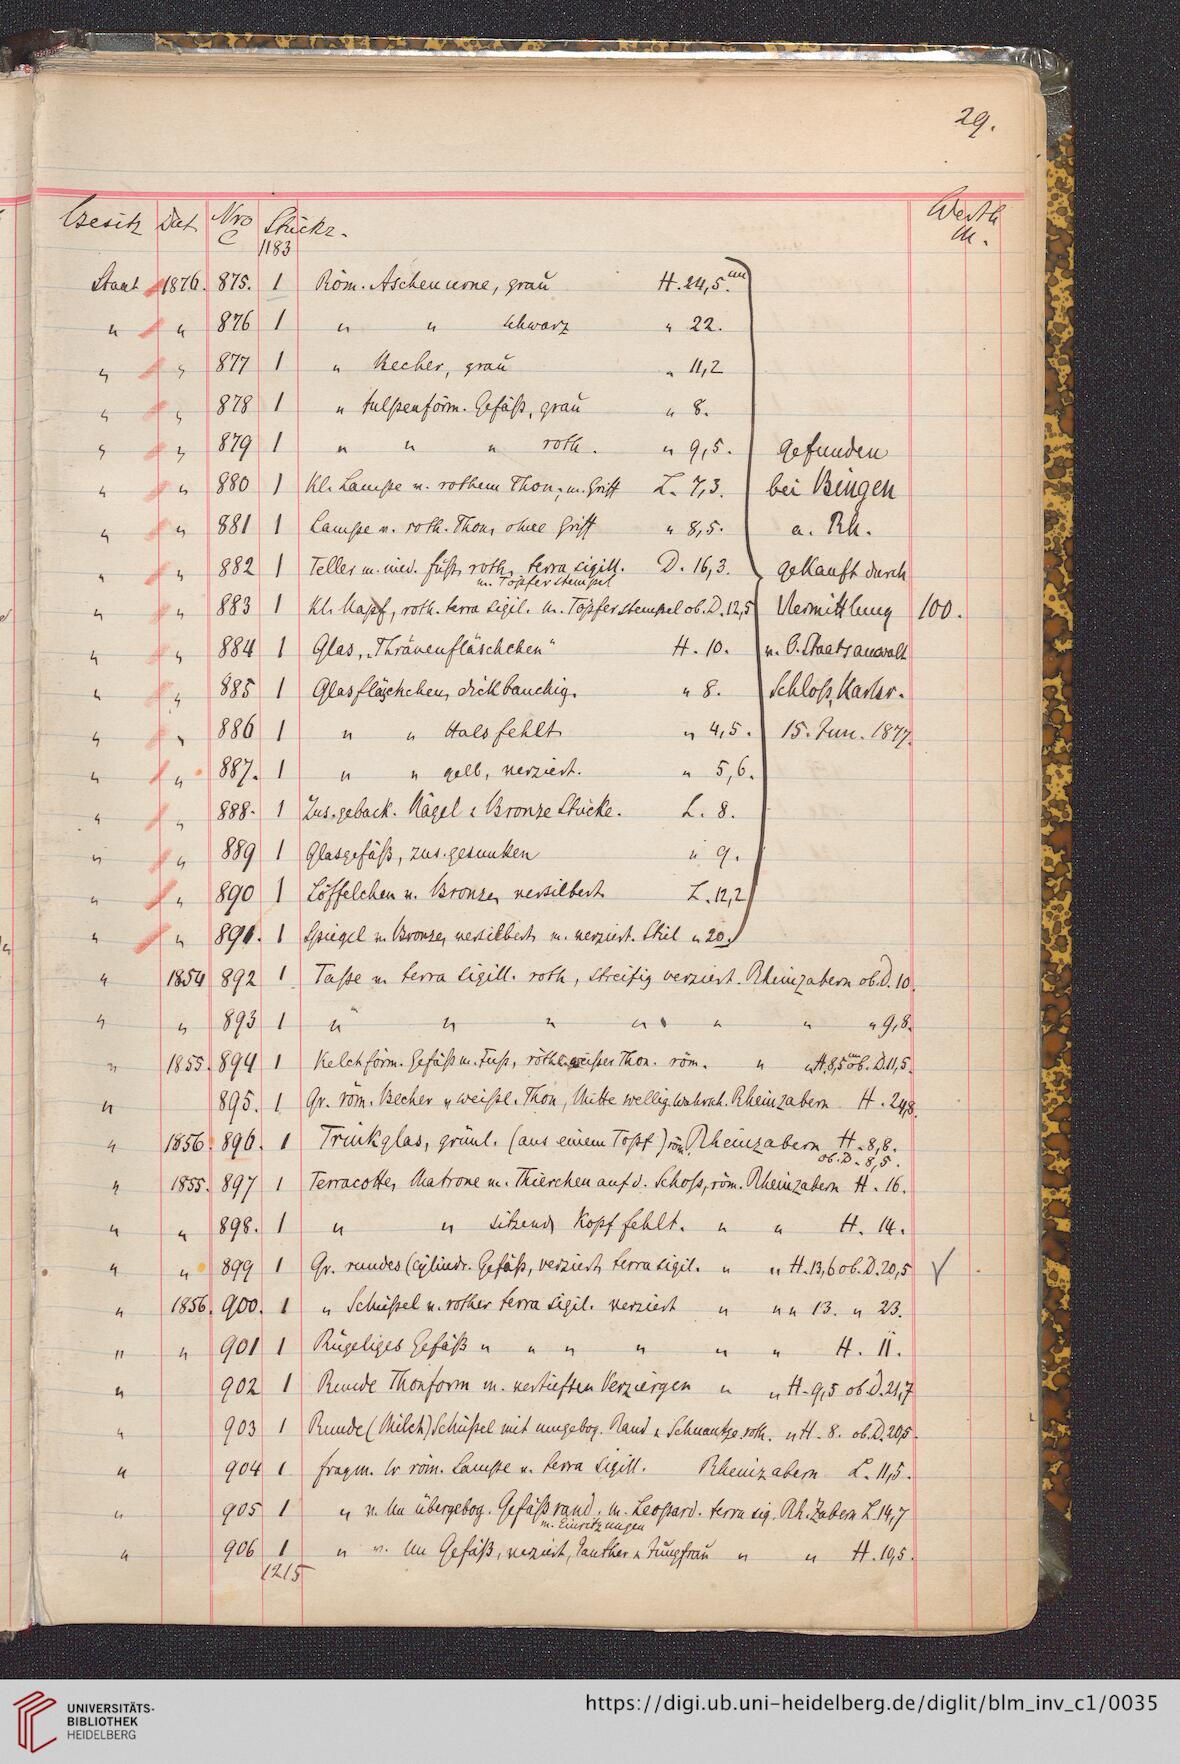 29.
Besitz Dat Nro C Stückz. Werth M.
1183
Staat 1876. 875. 1 Röm. Aschenurne, grau H. 24,5. cm
" " 876 1 " " schwarz " 22.
" " 877 1 " Becher, grau " 11,2
" " 878 1 " tulpenförm. Gefäß, grau " 8.
" " 879 1 " " " roth. " 9,5. gefunden
" " 880 1 Kl. Lampe v. rothem Thon, m. Griff L. 7,3. bei Bingen
" " 881 1 Lampe v. roth. Thon, ohne Griff " 8,5. a. Rh.
" " 882 1 Teller m. nied. Fuß, roth, terra sigill. D. 16,3. gekauft durch
m. Töpferstempel
" " 883 1 Kl. Napf, roth. terra sigil. m. Töpferstempel ob. D. 12,5 Vermittlung 100.
" " 884 1 Glas, „Thränenfläschchen" H. 10. v. O. Staatsanwalt
" " 885 1 Glasfläschchen, dickbauchig. " 8. Schloß, Karlsr.
" " 886 1 " " Hals fehlt " 4,5. 15. Jun. 1877.
" " 887. 1 " " gelb, verziert. " 5,6.
" " 888. 1 Zus. geback. Nägel & Bronze Stücke. L. 8.
" " 889 1 Glasgefäß, zus. gesunken " 9.
" " 890 1 Löffelchen v. Bronze, versilbert L. 12,2
" " 891. 1 Spiegel v. Bronze, versilbert, m. verziert. Stil " 20.
" 1854 892 1 Taße v. terra sigill. roth, streifig verziert. Rheinzabern ob. D. 10.
" " 893 1 " " " " " " " 9,8.
" 1855. 894 1 Kelchförm. Gefäß m. Fuß, röthl. weißer Thon. röm. " " H. 8,5 cm ob. D. 11,5.
" 895. 1 Gr. röm. Becher v. weißl. Thon, Mitte wellig Rheinzabern H. 24,8.
" 1856. 896. 1 Trinkglas, grünl. (aus einem Topf) röm. Rheinzabern H. 8,8.
ob. D. 8,5.
" 1855. 897 1 Terracotte, Matrone m. Thierchen auf d. Schoß, röm. Rheinzabern H. 16.
" " 898. 1 " " sitzend, Kopf fehlt. " " H. 14.
" " 899 1 Gr. rundes (cylindr. Gefäß, verziert, terra sigil. " " H. 13,6 ob. D. 20,5
" 1856. 900. 1 " Schüßel v. rother terra sigil. verziert " " " 13. " 23.
" " 901 1 Kugeliges Gefäß " " " " " " H. 11.
" 902 1 Runde Thonform m. vertieften Verziergen " " H. 9,5 ob. D. 21,7
" 903 1 Runde (Milch) Schüßel mit umgebog. Rand & Schnautze. roth. " H. 8. ob. D. 20,5.
" 904 1 fragm. röm. Lampe v. terra sigill. Rheinzabern L. 11,5.
" 905 1 " v. übergebog. Gefäßrand. m. Leopard. terra sig. Rh. Zabern L. 14,7
m. Einritzungen
" 906 1 " v. Gefäß, verziert, Panther & Jungfrau " " H. 10,5.
1215
UNIVERSITÄTS-
BIBLIOTHEK
HEIDELBERG
https://digi.ub.uni-heidelberg.de/diglit/blm_inv_c1/0035